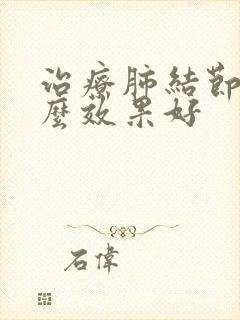 治療肺結節
麼效果好
石偉